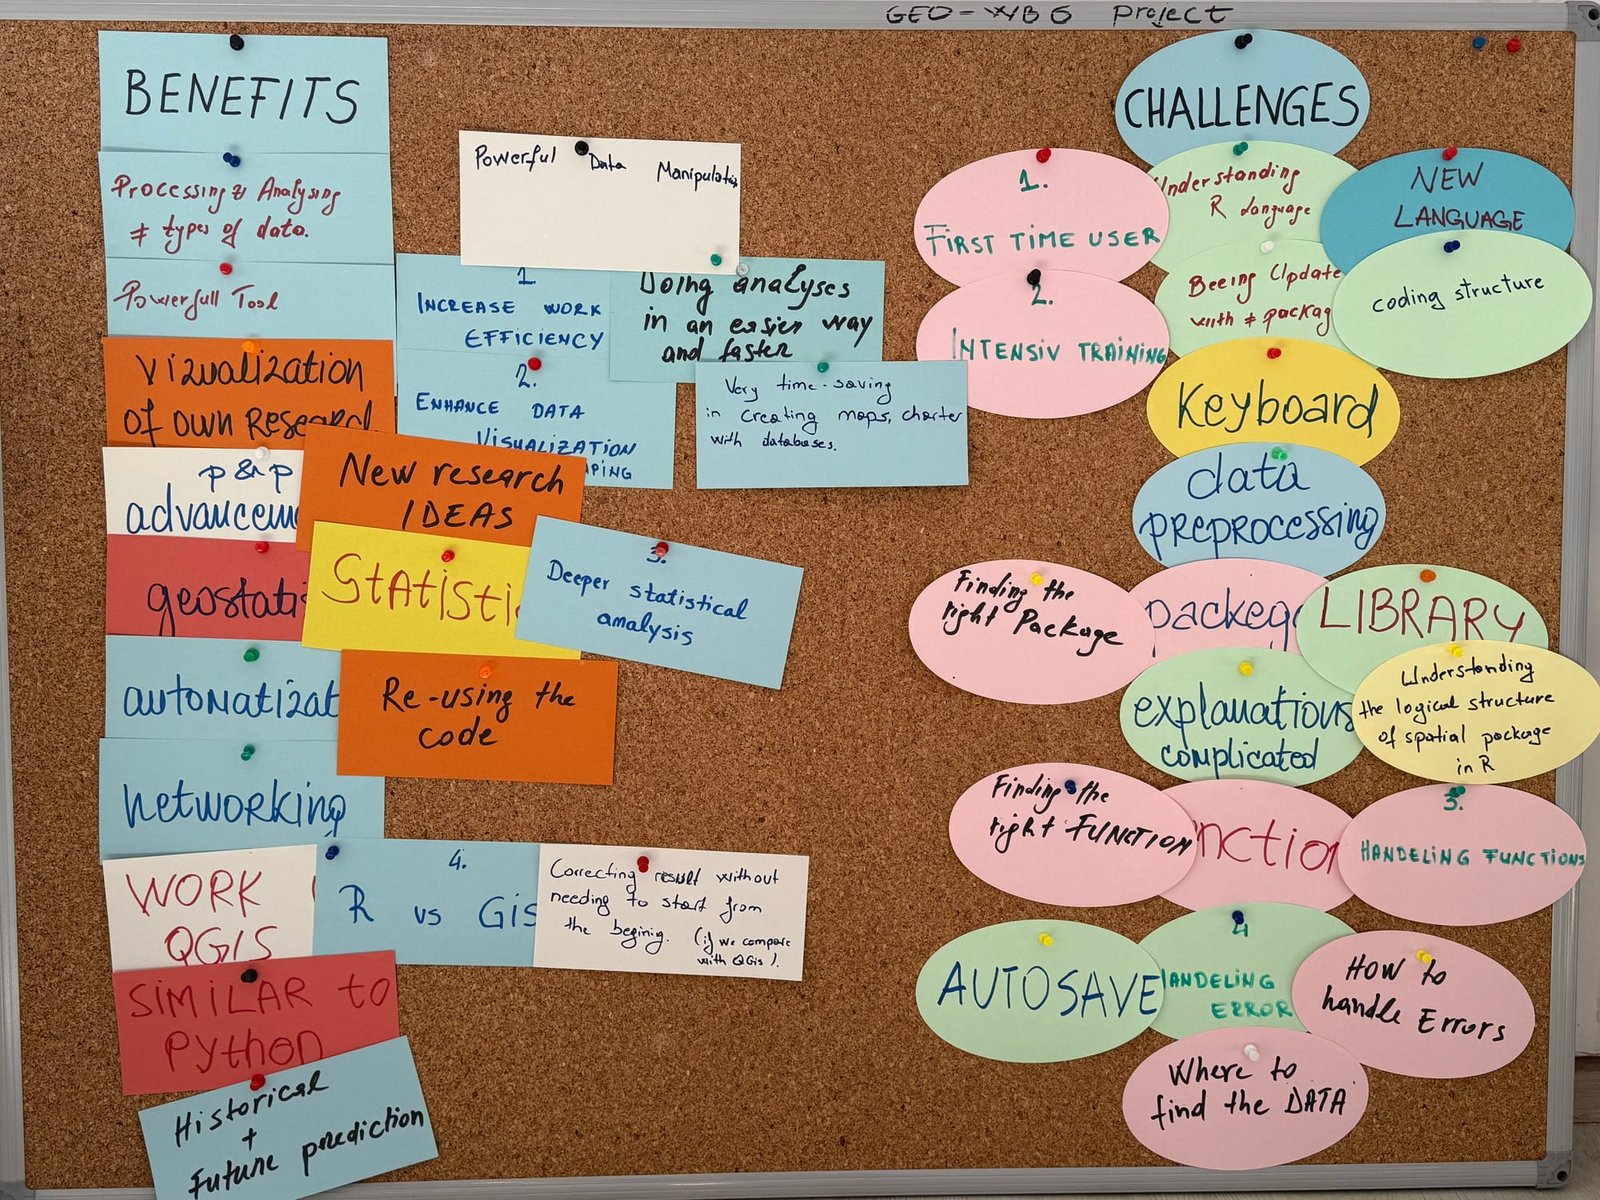 GEO-WB6 project
BENEFITS
Processing & Analysing
≠ types of data.
Powerfull Tool
Vizualization
of own Research
p & p
advancem
geostati
automatizat
networking
WORK
QGIS
SIMILAR to
Python
Historical
+
Future prediction
Powerful Data Manipulatio
1.
INCREASE WORK
EFFICIENCY
2.
ENHANCE DATA
VISUALIZATION
PING
Doing analyses
in an easier way
and faster
Very time-saving
in creating maps, charter
with databases.
New research
IDEAS
Statisti
3.
Deeper statistical
analysis
Re-using the
code
4.
R vs GIS
Correcting result without
needing to start from
the begining. (if we compare
with QGis).
CHALLENGES
1.
FIRST TIME USER
Understanding
R Language
NEW
LANGUAGE
2.
INTENSIV TRAINING
Beeing Update
with ≠ packag
coding structure
Keyboard
data
preprocessing
Finding the
right Package
packeg
LIBRARY
explanations
complicated
Understanding
the logical structure
of spatial package
in R
Finding the
right FUNCTION
nction
3.
HANDELING FUNCTIONS
AUTOSAVE
4
HANDELING
ERROR
HOW to
handle Errors
Where to
find the DATA